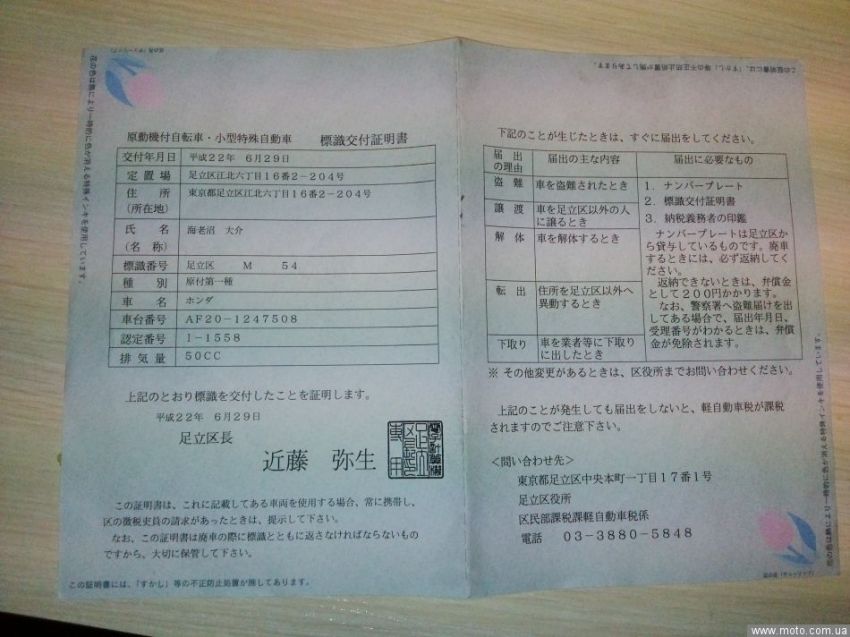 原動機付自転車・小型特殊自動車 標識交付証明書
交付年月日 平成22年 6月29日
定置場 足立区江北六丁目16番2-204号
住所 東京都足立区江北六丁目16番2-204号
(所在地)
氏名 海老沼 大介
(名称)
標識番号 足立区 M 54
種別 原付第一種
車名 ホンダ
車台番号 AF20-1247508
認定番号 I-1558
排気量 50CC
上記のとおり標識を交付したことを証明します。
平成22年 6月29日
足立区長
近藤 弥生
この証明書は、これに記載してある車両を使用する場合、常に携帯し、
区の徴税吏員の請求があったときは、提示して下さい。
なお、この証明書は廃車の際に標識とともに返さなければならないもの
ですから、大切に保管して下さい。
この証明書には、「すかし」等の不正防止処置が施してあります。
花の色は熱により一時的に色が消える特殊インキを使用しています。
この証明書には、「すかし」等の不正防止処置が施してあります。
下記のことが生じたときは、すぐに届出をしてください。
届出の理由 届出の主な内容 届出に必要なもの
盗難 車を盗難されたとき
譲渡 車を足立区以外の人
に譲るとき
解体 車を解体するとき
転出 住所を足立区以外へ
異動するとき
下取り 車を業者等に下取り
に出したとき
1. ナンバープレート
2. 標識交付証明書
3. 納税義務者の印鑑
ナンバープレートは足立区か
ら貸与しているものです。廃車
するときには、必ず返納してく
ださい。
返納できないときは、弁償金
として200円かかります。
なお、警察署へ盗難届けを出
してある場合で、届出年月日、
受理番号がわかるときは、弁償
金が免除されます。
※ その他変更があるときは、区役所までお問い合わせください。
上記のことが発生しても届出をしないと、軽自動車税が課税
されますのでご注意下さい。
<問い合わせ先>
東京都足立区中央本町一丁目17番1号
足立区役所
区民部課税課軽自動車税係
電話 03-3880-5848
花の色は熱により一時的に色が消える特殊インキを使用しています。
www.moto.com.ua